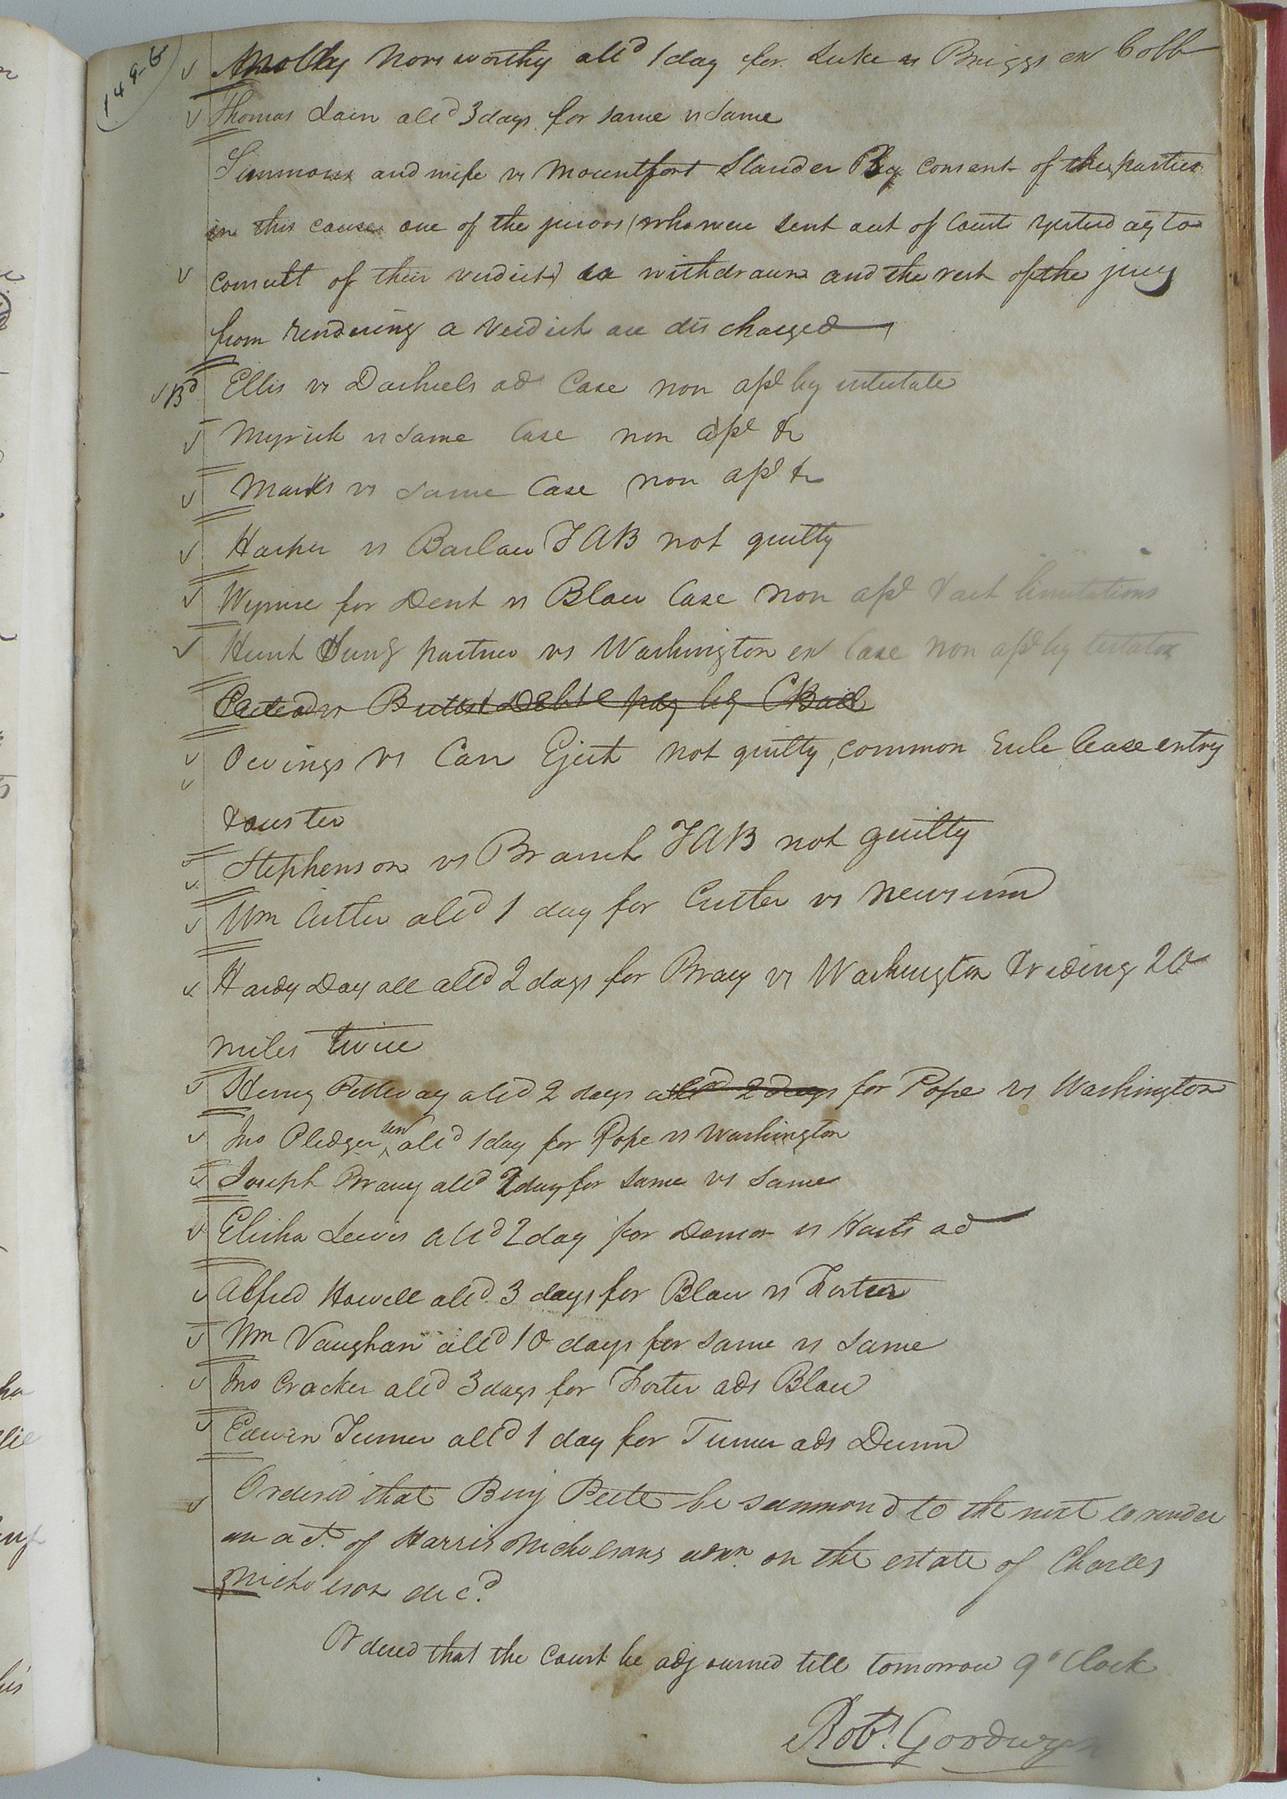 149-6
Molley Norsworthy alld 1 day for Luke vs Briggs ex Cobb
Thomas Lain alld 3 days for same vs same
Simmons and wife vs Mountfort Slander By consent of the parties
in this cause one of the jurors (who were sent out of Court yesterday to
consult of their verdict) is withdrawn and the rest of the jury
from rendering a Verdict are discharged
Bd Ellis vs Dashiels ad Case non apt by intestate
Myrick vs same Case non apt &c
Marks vs same Case non apt &c
Harper vs Barlow TAB not guilty
Wynne for Dent vs Blow Case non apt & act limitations
Hunt surv partner vs Washington ex Case non apt by testator
vs Butts Debt pay by C Bail
Owings vs Carr Eject not guilty, common rule lease entry
& ouster
Stephenson vs Branch TAB not guilty
Wm Cutler alld 1 day for Cutler vs Newsum
Hardy Day all alld 2 days for Bracy vs Washington & riding 20
miles twice
Henry Pettway alld 2 days alld 2 days for Pope vs Washington
Jno Pledger sen alld 1 day for Pope vs Washington
Joseph Bracy alld 2 day for same vs same
Elisha Lewis alld 2 day for Damon vs Harts ad
Alfred Howell alld 3 days for Blow vs Foster
Wm Vaughan alld 10 days for same vs same
Jno Crocker alld 3 days for Foster ads Blow
Edwin Turner alld 1 day for Turner ads Dunn
Ordered that Benj Peete be summond to the next co render
an act. of Harris Nicholsons admn. on the estate of Charles
Nicholson decd.
Ordered that the Court be adjourned till tomorrow 9 oClock
Robt. Goodwyn